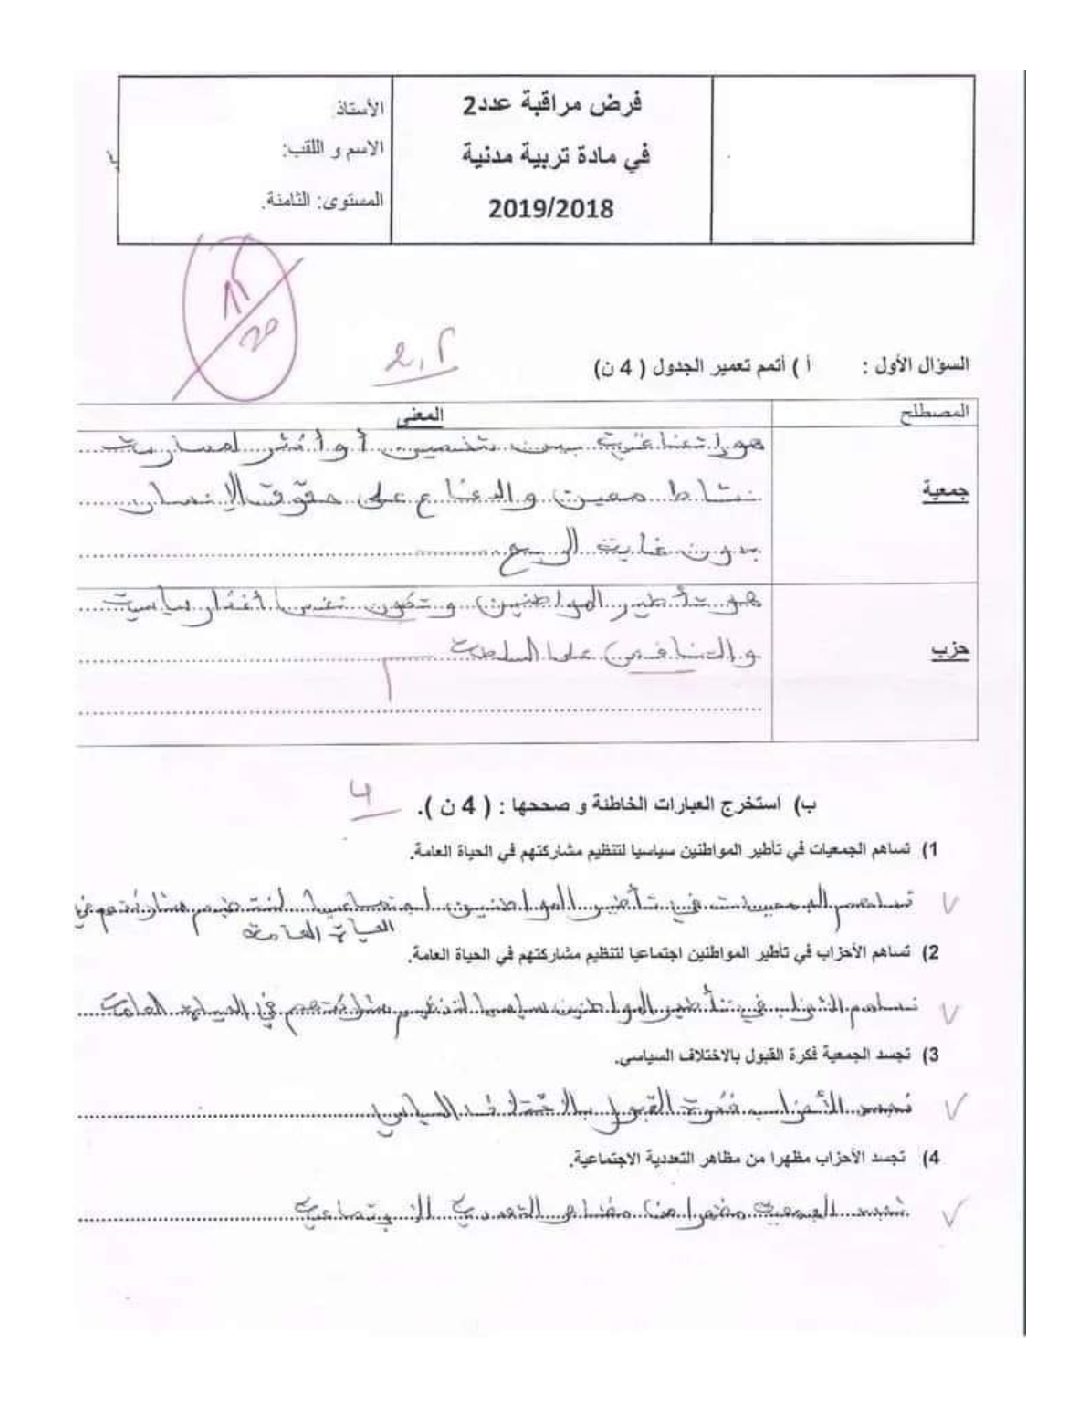 فرض مراقبة عدد2
في مادة تربية مدنية
2019/2018
الأستاذ:
الاسم و اللقب:
المستوى: الثامنة.
20
السؤال الأول : أ ) أتمم تعمير الجدول ( 4 ن)
المصطلح المعنى
جمعية
هو اتفاقية بين شخصين أو أكثر لممارسة
نشاط معين والدفاع على حقوق الإنسان
بدون غاية الربح
حزب
هو تأطير المواطنين وتكون نفس أفكار سياسية
والتنافس على السلطة
ب) استخرج العبارات الخاطئة و صححها : ( 4 ن ). 4
1) تساهم الجمعيات في تأطير المواطنين سياسيا لتنظيم مشاركتهم في الحياة العامة.
تساهم الجمعيات في تأطير المواطنين اجتماعيا لتنظيم مشاركتهم في
الحياة العامة
2) تساهم الأحزاب في تأطير المواطنين اجتماعيا لتنظيم مشاركتهم في الحياة العامة.
تساهم الأحزاب في تأطير المواطنين سياسيا لتنظيم مشاركتهم في الحياة العامة
3) تجسد الجمعية فكرة القبول بالاختلاف السياسي.
تجسد الأحزاب فكرة القبول بالاختلاف السياسي
4) تجسد الأحزاب مظهرا من مظاهر التعددية الاجتماعية.
تجسد الجمعية مظهرا من مظاهر التعددية الاجتماعية